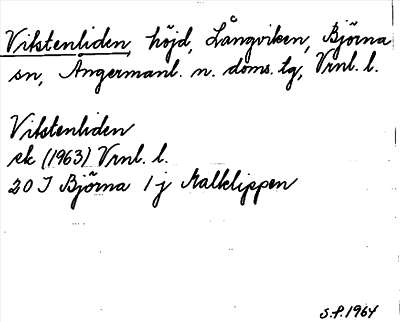 Vitstenliden, höjd, Långviken, Björna
sn, Ångermanl. n. doms. lg, Vrnl. l.
Vitstenliden
ek (1963) Vrnl. l.
20 I Björna 1 j Kalklippen
S.P. 1964